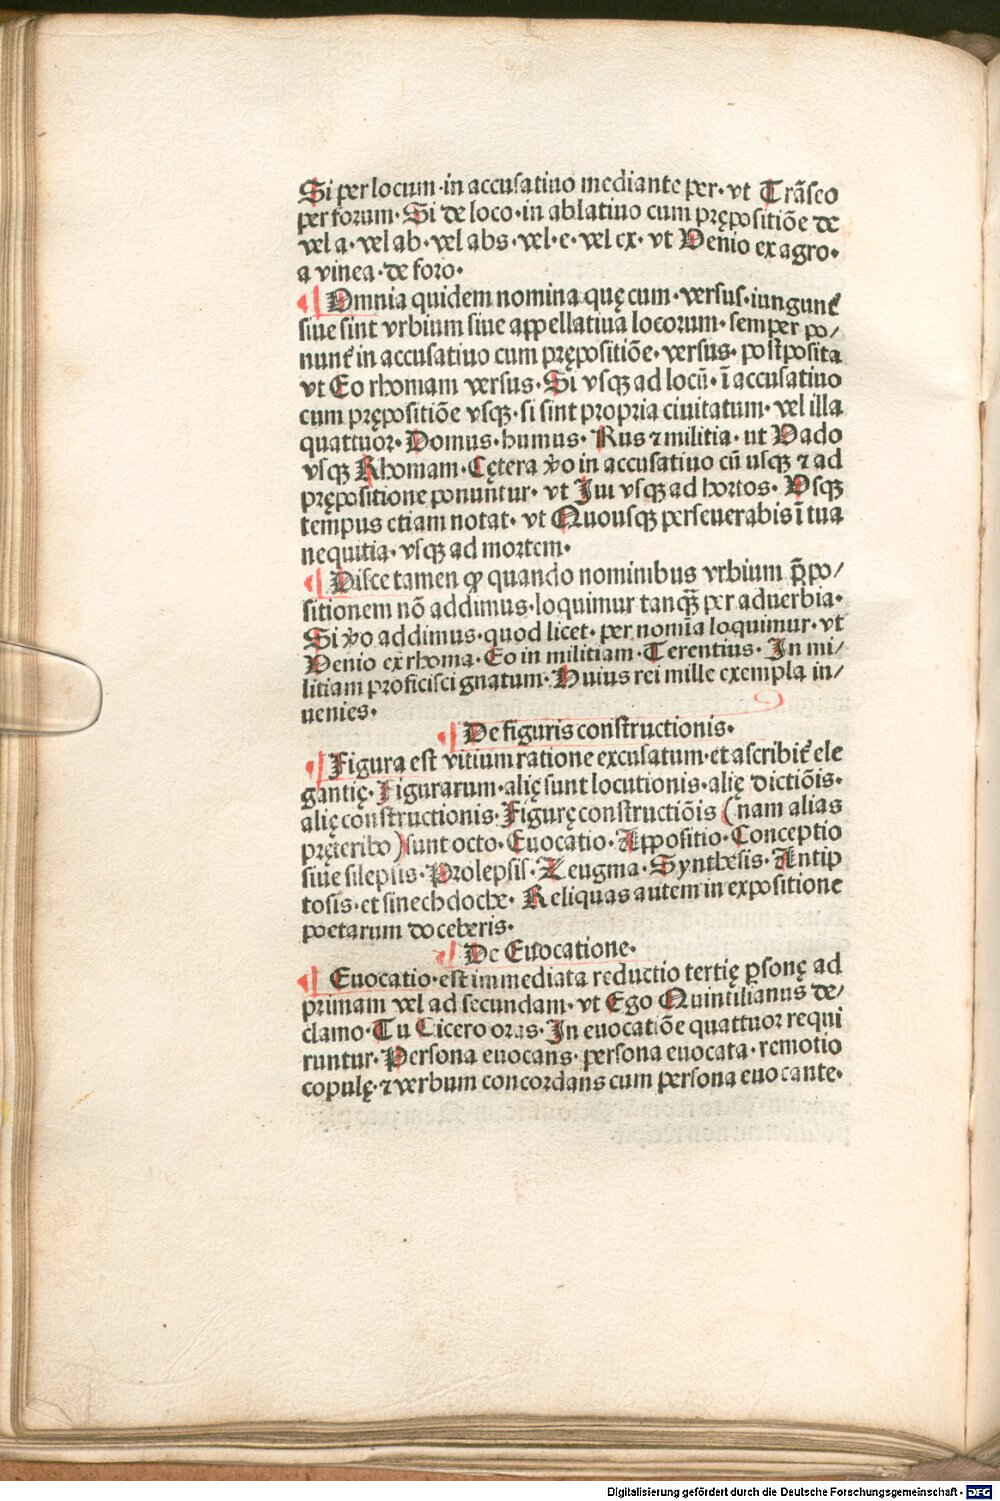 Si per locum·in accusatiuo mediante per·vt Trãseo
per forum·Si de loco·in ablatiuo cum prępositiõe de
vel a·vel ab·vel abs·vel·e·vel ex·vt Uenio ex agro·
a vinea·de foro·
¶ Omnia quidem nomina quę cum·versus·iungunt᷑
siue sint vrbium siue appellatiua locorum·semper po/
nunt᷑ in accusatiuo cum prępositiõe·versus·postposita
vt Eo rhomam versus·Si vsqꝫ ad locũ·ĩ accusatiuo
cum prępositiõe vsqꝫ·si sint propria ciuitatum·vel illa
quattuor·Domus·humus·Rus ⁊ militia·ut Uado
vsqꝫ Rhomam·Cętera ꝟo in accusatiuo cũ usqꝫ ⁊ ad
prępositione ponuntur·vt Iui vsqꝫ ad hortos·Usqꝫ
tempus etiam notat·vt Quousqꝫ perseuerabis ĩ tua
nequitia·vsqꝫ ad mortem·
¶ Disce tamen ꝙ quando nominibus vrbium p̃po/
sitionem nõ addimus·loquimur tanqꝫ̃ per aduerbia·
Si ꝟo addimus·quod licet·per nomĩa loquimur·vt
Uenio ex rhoma·Eo in militiam·Terentius·In mi/
litiam proficisci gnatum·Huius rei mille exempla in/
uenies·
¶ De figuris constructionis·
¶ Figura est vitium ratione excusatum·et ascribit᷑ ele
gantię·Figurarum·alię sunt locutionis·alię dictiõis·
alię constructionis·Figurę constructiõis (nam alias
pręteribo) sunt octo·Euocatio·Appositio·Conceptio
siue silepsis·Prolepsis·Zeugma·Synthesis·Antip
tosis·et sinechdoche·Reliquas autem in expositione
poetarum doceberis·
¶ De Euocatione·
¶ Euocatio·est immediata reductio tertię ꝑsonę ad
primam vel ad secundam·vt Ego Quintilianus de/
clamo·Tu Cicero oras·In euocatiõe quattuor requi
runtur·Persona euocans·persona euocata·remotio
copulę·⁊ verbum concordans cum persona euocante·
Digitalisierung gefördert durch die Deutsche Forschungsgemeinschaft - DFG